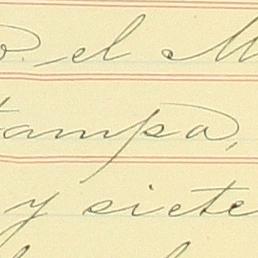 el
tampa,
y siete